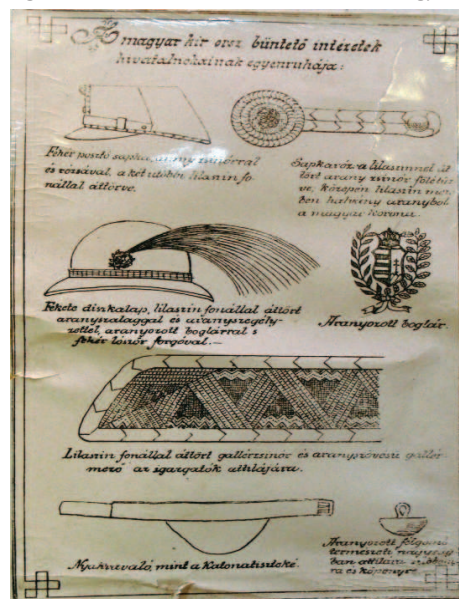 A magyar kir. orsz. büntető intézetek
hivatalnokainak egyenruhája:
Fehér posztó sapka, arany zsinórral
és rózsával, a két utóbbi lilaszin fo-
nállal áttörve.
Sapkarózsa lilaszinnel át-
tört arany zsinór fölött
ve, középen lilaszin mező-
ben halvány aranyból
a magyar korona.
Fekete diszkalap, lilaszin fonállal áttört
aranyszalaggal és aranyszegély-
zettel, aranyozott boglárral s
fehér lószőr forgóval.—
Aranyozott boglár.
Lilaszin fonállal áttört gallérzsinór és aranyszövésű gallér
mező az igazgatók attilájára.
Nyakravaló mint a Katonatiszteké.
Aranyozott félgömb
természeti nagyság-
ban attilára
ra és köpenyre.